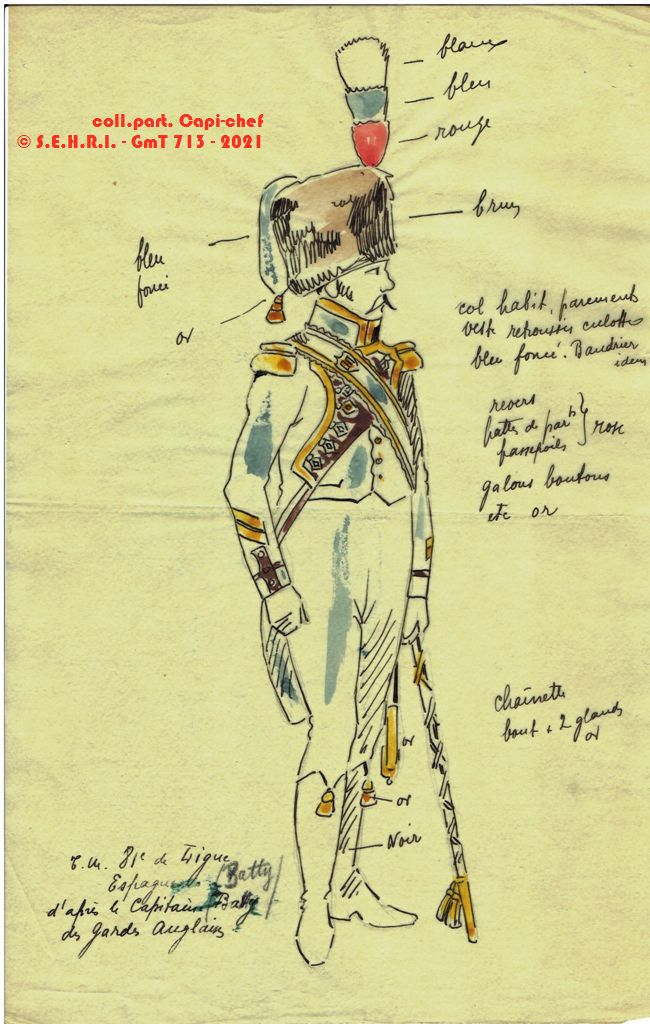 coll.part. Capi-chef
© S.E.H.R.I. - GmT 713 - 2021
blanc
bleu
rouge
brun
bleu
foncé
or
col habit, parements
veste retroussis culotte
bleu foncé. Baudrier
idem
revers
pattes de parts
passepoils
rose
galons boutons
etc or
chaînette
bout + 2 glands
or
or
or
Noir
T.M. 81e de Ligne
Espagne (Batty)
d'après le Capitaine (Batty)
des Gardes Anglais